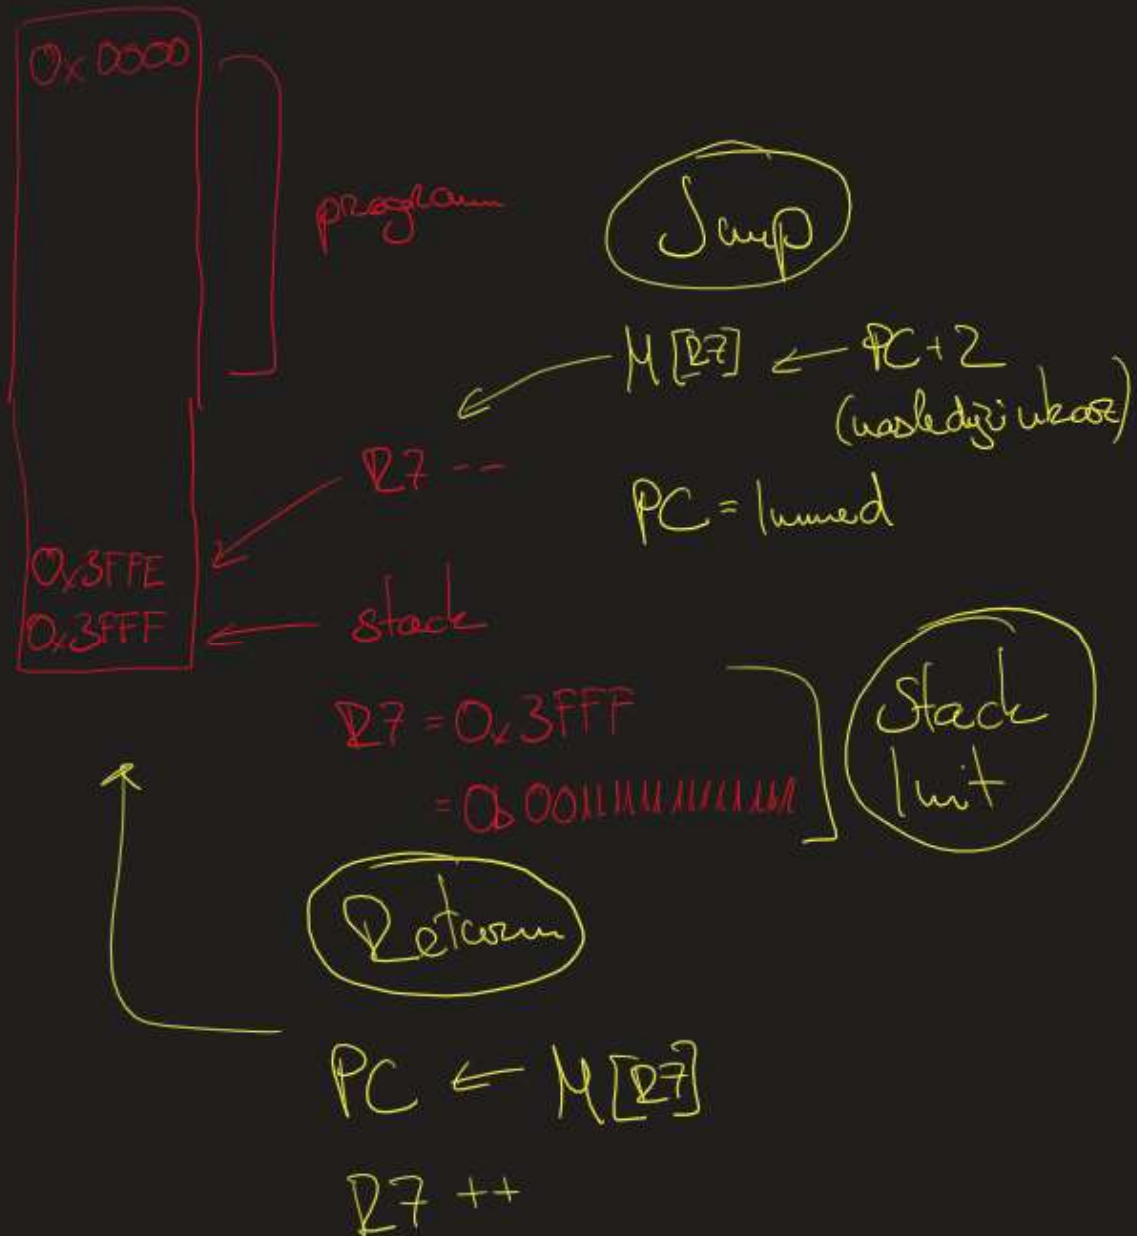 0x0000
program
Jump
M[R7] ← PC+2
(naslednji ukaz)
R7 --
PC = Immed
0x3FFE
0x3FFF
stack
R7 = 0x3FFF
= 0b0011111111111111
Stack
Init
Return
PC ← M[R7]
R7 ++